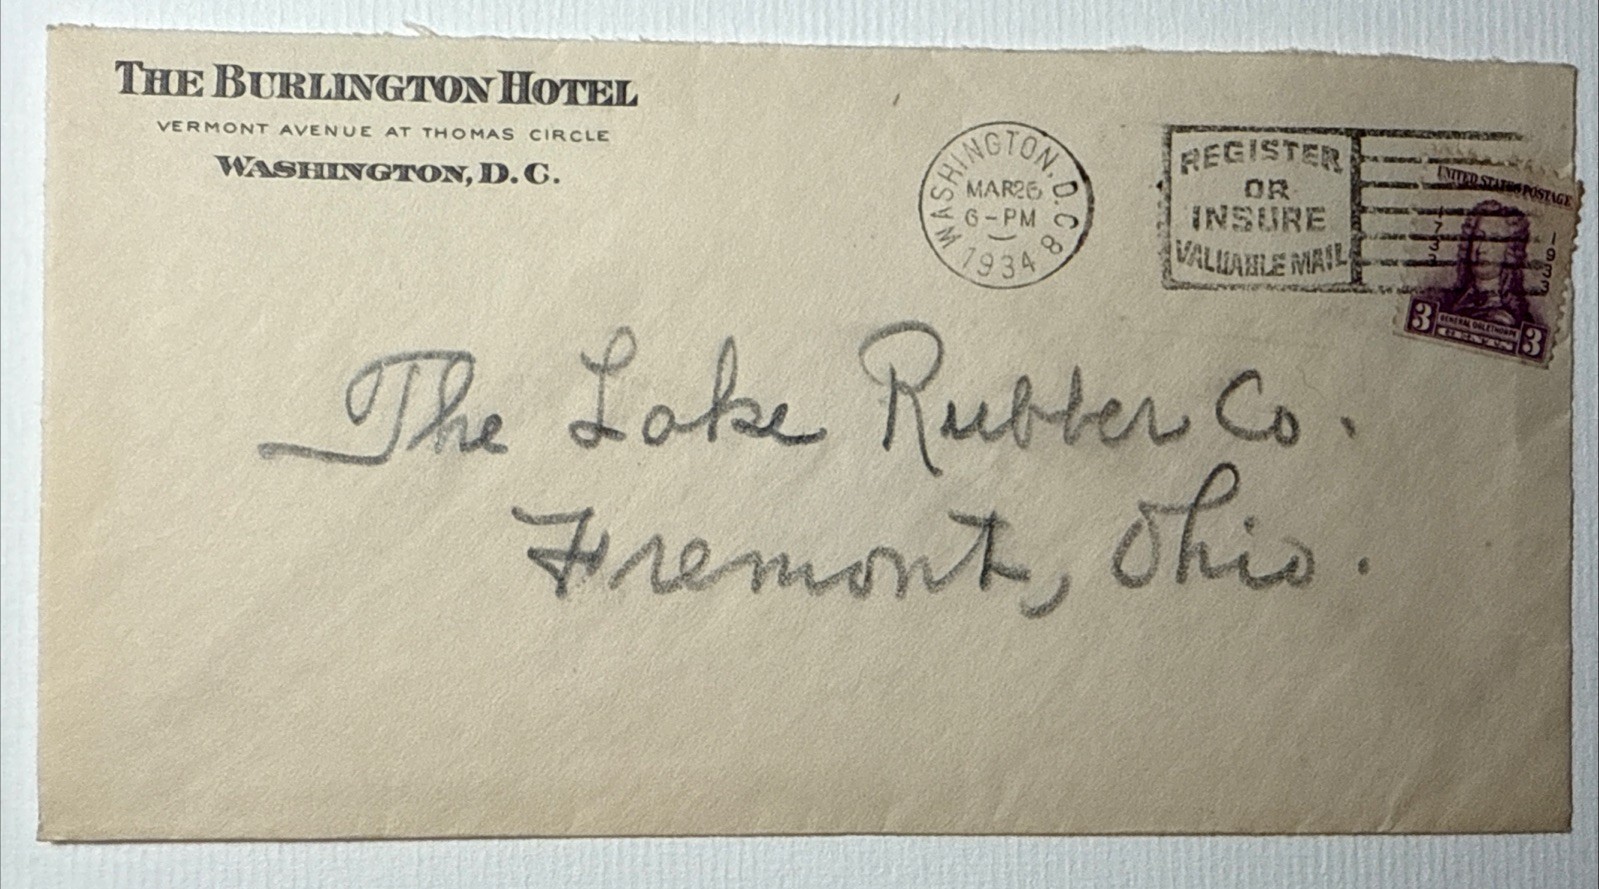 THE BURLINGTON HOTEL
VERMONT AVENUE AT THOMAS CIRCLE
WASHINGTON, D. C.
WASHINGTON, D.C.
MAR 26
6-PM
1934
8
REGISTER
OR
INSURE
VALUABLE MAIL
UNITED STATES POSTAGE
1733
1933
3 GENERAL OGLETHORPE 3
The Lake Rubber Co.
Fremont, Ohio.